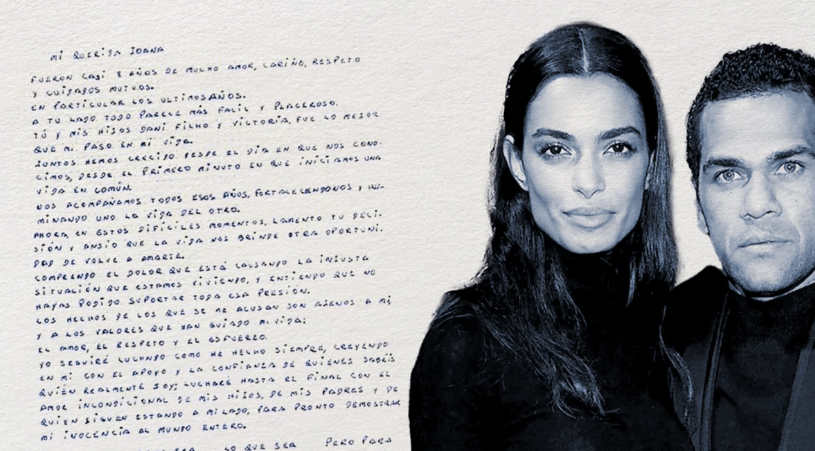 MI QUERIDA JOANA
FUERON CASI 8 AÑOS DE MUCHO AMOR, CARIÑO, RESPETO
Y CUIDADOS MUTUOS.
EN PARTICULAR LOS ULTIMOS AÑOS.
A TU LADO TODO PARECE MÁS FACIL Y PLACEROSO.
TÚ Y MIS HIJOS DANI FILHO Y VICTORIA, FUE LO MEJOR
QUE MI PASO EN MI VIDA.
JUNTOS HEMOS CRECIDO DESDE EL DÍA EN QUE NOS CONO-
CIMOS, DESDE EL PRIMERO MINUTO EN QUE INICIAMOS UNA
VIDA EN COMÚN.
NOS ACOMPAÑAMOS TODOS ESOS AÑOS, FORTALECENDONOS Y ILU-
MINANDO UNO LA VIDA DEL OTRO.
AHORA, EN ESTOS DIFÍCILES MOMENTOS, LAMENTO TU DECI-
SIÓN Y ANSIO QUE LA VIDA NOS BRINDE OTRA OPORTUNI-
DAD DE VOLVE A AMARTE.
COMPRENDO EL DOLOR QUE ESTÁ CAUSANDO LA INJUSTA
SITUACIÓN QUE ESTAMOS VIVIENDO, Y ENTIENDO QUE NO
HAYAS PODIDO SUPORTAR TODA ESA PRESIÓN.
LOS HECHOS DE LOS QUE SE ME ACUSAN SON AJENOS A MÍ,
Y A LOS VALORES QUE HAN GUIADO MI VIDA:
EL AMOR, EL RESPETO Y EL ESFUERZO.
YO SEGUIRÉ LUCHANDO COMO HE HECHO SIEMPRE, CREYENDO
EN MÍ CON EL APOYO Y LA CONFIANZA DE QUIENES SABÉIS
QUIÉN REALMENTE SOY; LUCHARÉ HASTA EL FINAL CON EL
AMOR INCONDICIONAL DE MIS HIJOS, DE MIS PADRES Y DE
QUIEN SIGUEN ESTANDO A MI LADO, PARA PRONTO DEMOSTRAR
MI INOCENCIA AL MUNDO ENTERO.
LO QUE SEA PERO PARA